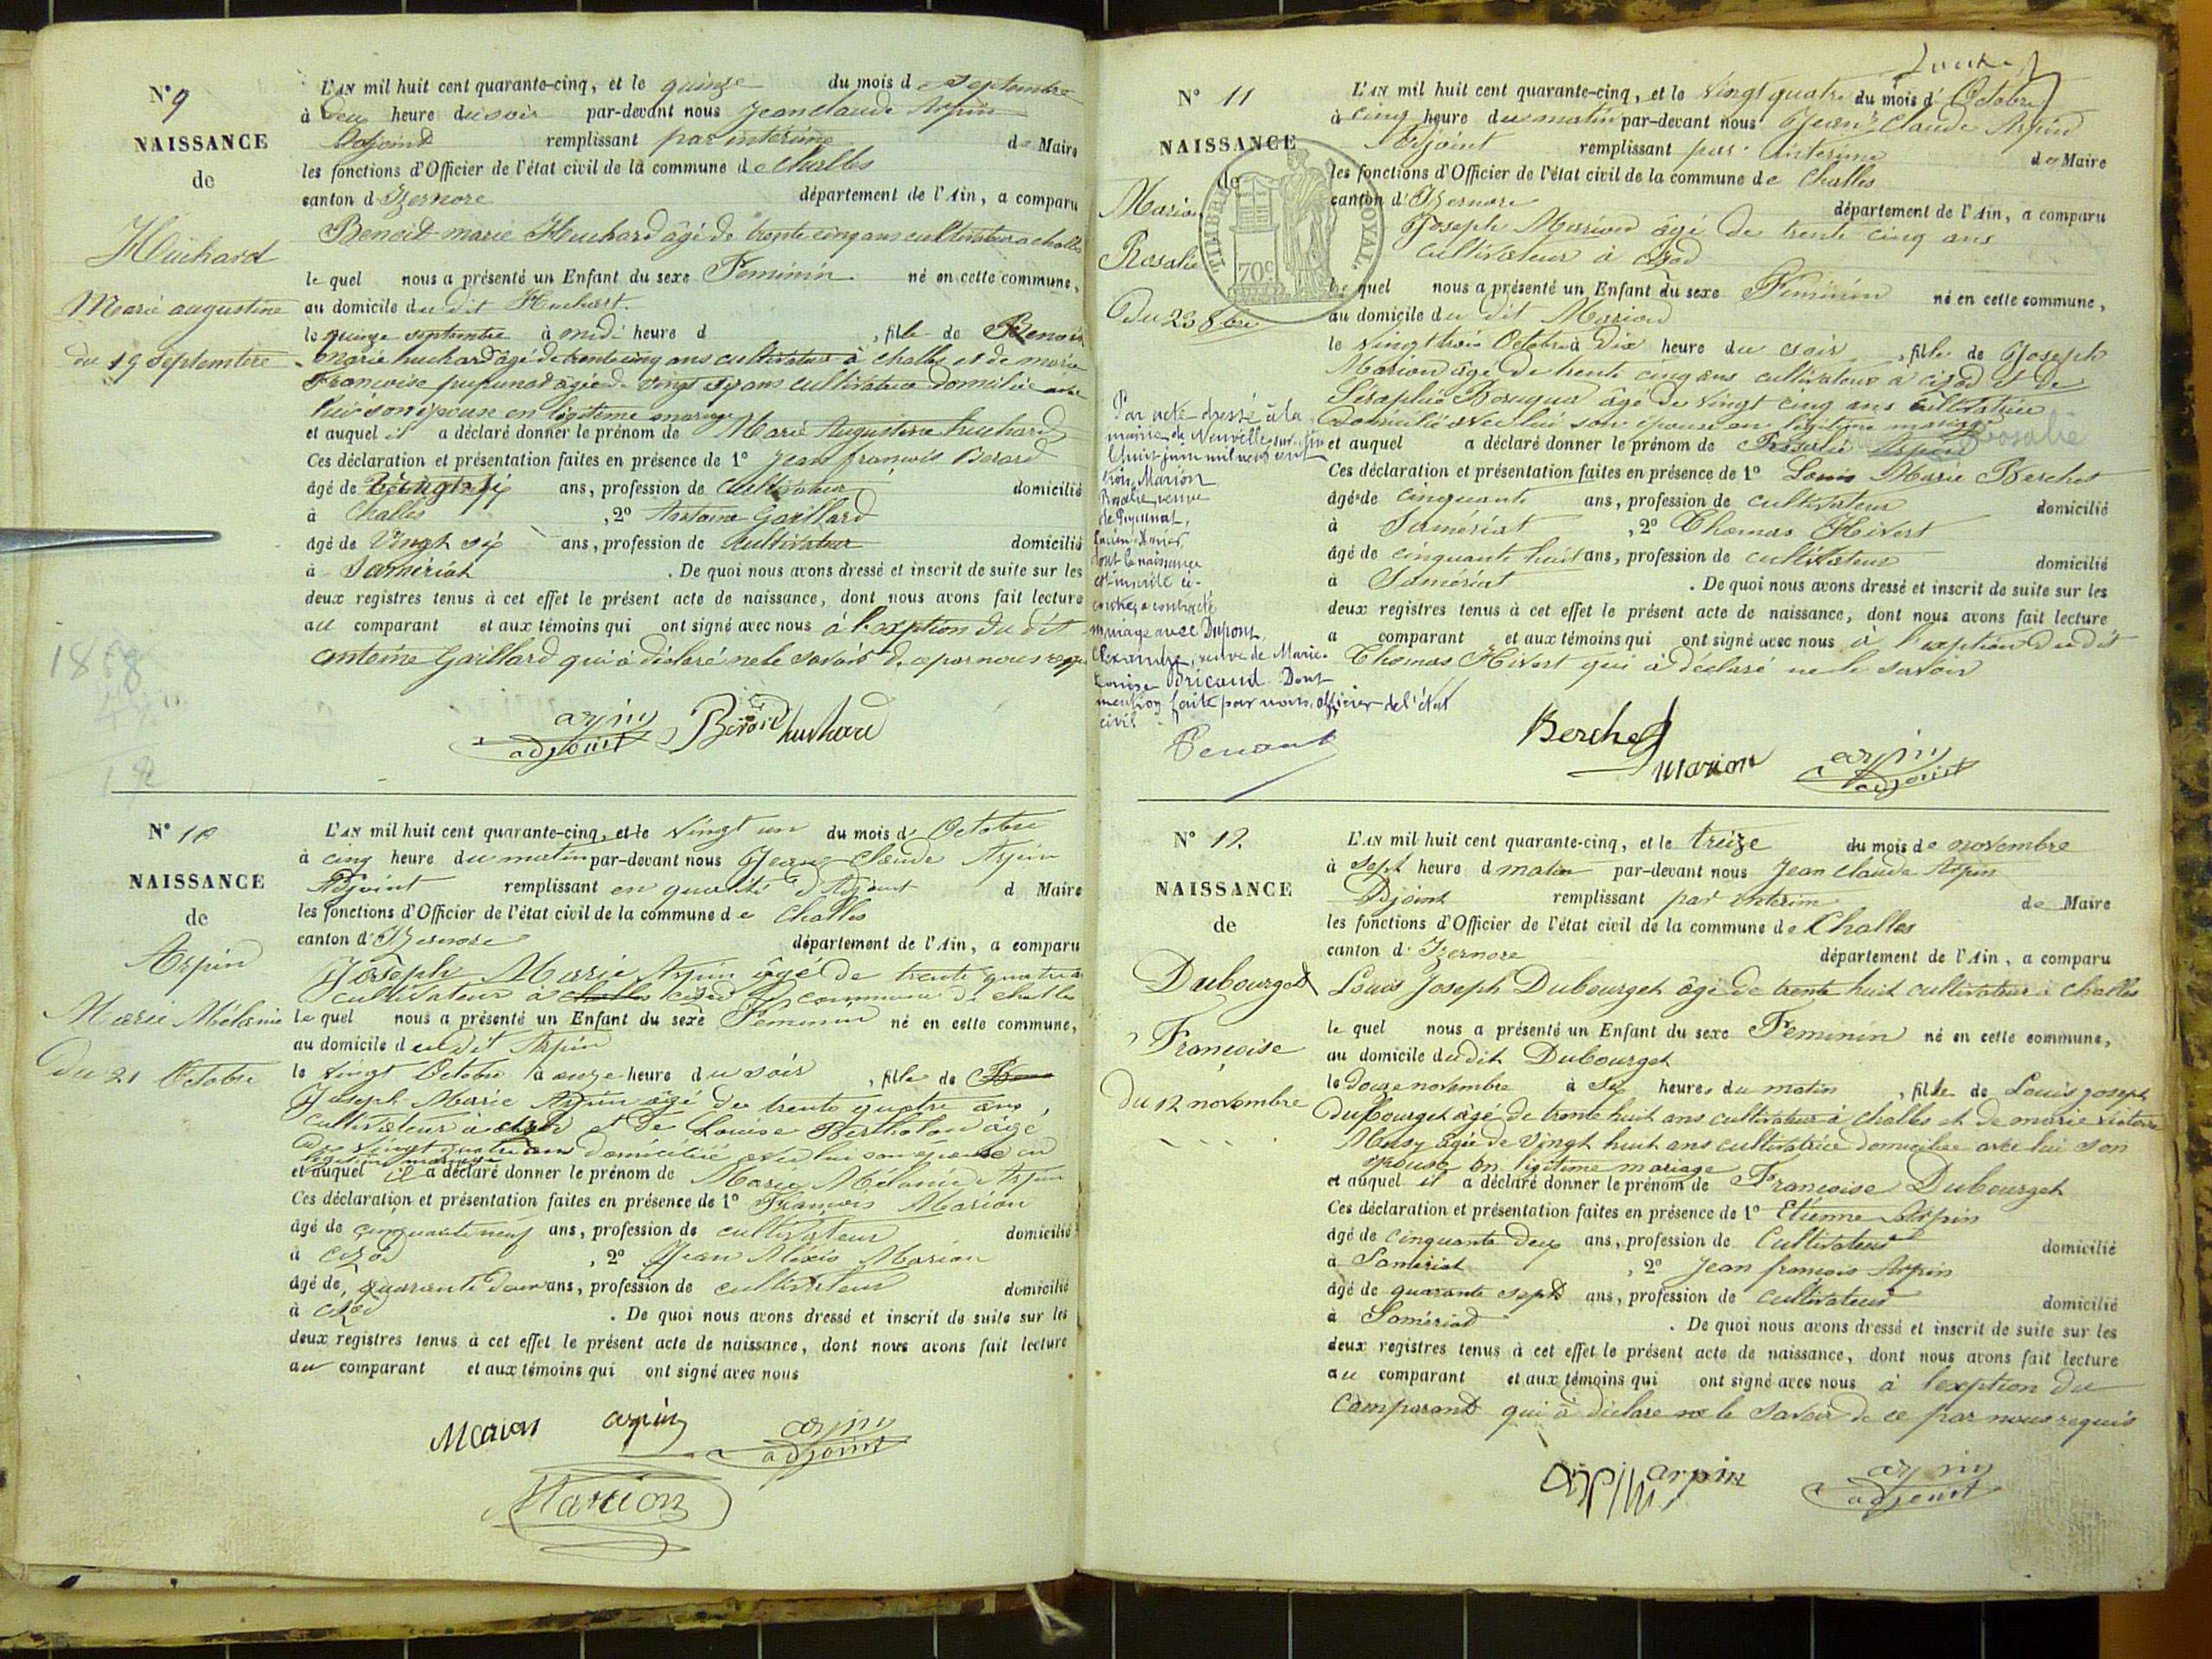 N° 9
NAISSANCE
de
Huchard
Marie augustine
du 15 septembre
L'AN mil huit cent quarante-cinq, et le quinze du mois de septembre
à deux heure du soir par-devant nous Jean claude Arpin
Adjoint remplissant par interime de Maire
les fonctions d'Officier de l'état civil de la commune de Challes
canton d'Izernore département de l'Ain, a comparu
Benoit marie Huchard âgé de trente cinq ans cultivateur a challes
le quel nous a présenté un Enfant du sexe Feminin né en cette commune,
au domicile du dit Huchart
le quinze septembre à midi heure d , fille de Benoit
marie huchard âgé de trente cinq ans cultivateur à challes et de marie
Francoise pupunat âgée de vingt six ans cultivatrice domiciliée avec
lui son épouse en légitime mariage
et auquel il a déclaré donner le prénom de Marie Augustine huchard
Ces déclaration et présentation faites en présence de 1° Jean francois Berard
âgé de vingt six ans, profession de Cultivateur domicilié
à Challes , 2° Antoine Gaillard
âgé de Vingt six ans, profession de Cultivateur domicilié
à Samériat . De quoi nous avons dressé et inscrit de suite sur les
deux registres tenus à cet effet le présent acte de naissance, dont nous avons fait lecture
au comparant et aux témoins qui ont signé avec nous à l'exption du dit
antoine Gaillard qui à déclaré ne le savoir de ce par nous
arpin adjoint Berard huchard
N° 10
NAISSANCE
de
Arpin
Marie Mélanie
Du 21 Octobre
L'AN mil huit cent quarante-cinq, et le vingt un du mois d'Octobre
à cinq heure du matin par-devant nous Jean Claude Arpin
Adjoint remplissant en qualité d'Adjoint d Maire
les fonctions d'Officier de l'état civil de la commune de Challes
canton d'Izernore département de l'Ain, a comparu
Joseph Marie Arpin âgé de trente quatre
cultivateur à challes cizod commune de challes
le quel nous a présenté un Enfant du sexe Feminin né en cette commune,
au domicile du dit Arpin
le vingt Octobre à onze heure du soir , fille de
Joseph Marie Arpin âgé de trente quatre ans,
cultivateur à cizod et de Louise Bertholon âgé
de vingt quatre ans domiciliée avec lui son épouse en
légitime mariage
et auquel il a déclaré donner le prénom de Marie Mélanie Arpin
Ces déclaration et présentation faites en présence de 1° François Marion
âgé de cinquante neuf ans, profession de cultivateur domicilié
à cizod , 2° Jean Alexis Marion
âgé de quarante deux ans, profession de cultivateur domicilié
à cizod . De quoi nous avons dressé et inscrit de suite sur les
deux registres tenus à cet effet le présent acte de naissance, dont nous avons fait lecture
au comparant et aux témoins qui ont signé avec nous
Marion arpin arpin adjoint
Marion
N° 11
NAISSANCE
de
Marion
Rosalie
Du 23 8bre
TIMBRE ROYAL
70c
L'AN mil huit cent quarante-cinq, et le vingt quatre du mois d'Octobre
à cinq heure du matin par-devant nous Jean Claude Arpin
Adjoint remplissant par interime de Maire
les fonctions d'Officier de l'état civil de la commune de Challes
canton d'Izernore département de l'Ain, a comparu
Joseph Marion âgé de trente cinq ans
cultivateur à cizod
le quel nous a présenté un Enfant du sexe Feminin né en cette commune,
au domicile du dit Marion
le vingt trois Octobre à dix heure du soir , fille de Joseph
Marion âgé de trente cinq ans cultivateur à cizod et de
âgé de vingt cinq ans cultivatrice
domiciliée avec lui son épouse en légitime mariage
et auquel a déclaré donner le prénom de Rosalie Arpin Rosalie
Ces déclaration et présentation faites en présence de 1° Louis Marie Berchet
âgé de cinquante ans, profession de cultivateur domicilié
à Samériat , 2° Thomas Hivert
âgé de cinquante huit ans, profession de cultivateur domicilié
à Samériat . De quoi nous avons dressé et inscrit de suite sur les
deux registres tenus à cet effet le présent acte de naissance, dont nous avons fait lecture
a comparant et aux témoins qui ont signé avec nous à l'exption du dit
Thomas Hivert qui à déclaré ne le savoir
Berchet Marion arpin adjoint
Par acte dressé à la
mairie de Neuville-sur-Ain
le huit juin mil neuf cent
trois, Marion
Rosalie, veuve
de Pupunat,
dont la naissance
est inscrite ci-
contre, a contracté
mariage avec Dupont,
Alexandre, veuf de Marie-
Louise Bricaud. Dont
mention faite par nous, officier de l'état
civil
N° 12.
NAISSANCE
de
Dubourget
Françoise
du 12 novembre
L'AN mil huit cent quarante-cinq, et le treize du mois de novembre
à sept heure d matin par-devant nous Jean claude Arpin
Adjoint remplissant par interim de Maire
les fonctions d'Officier de l'état civil de la commune de Challes
canton d'Izernore département de l'Ain, a comparu
Louis Joseph Dubourget âgé de trente huit cultivateur à Challes
le quel nous a présenté un Enfant du sexe Feminin né en cette commune,
au domicile du dit Dubourget
le douze novembre à six heures du matin , fille de Louis joseph
dubourget âgé de trente huit ans cultivateur à challes et de marie victoire
Musy âgée de Vingt huit ans cultivatrice domiciliée avec lui son
épouse en légitime mariage
et auquel il a déclaré donner le prénom de Françoise Dubourget
Ces déclaration et présentation faites en présence de 1° Etienne Arpin
âgé de cinquante deux ans, profession de Cultivateur domicilié
à Samériat , 2° Jean francois Arpin
âgé de quarante sept ans, profession de cultivateur domicilié
à Samériat . De quoi nous avons dressé et inscrit de suite sur les
deux registres tenus à cet effet le présent acte de naissance, dont nous avons fait lecture
au comparant et aux témoins qui ont signé avec nous à l'exption du
Comparant qui à déclare ne le savoir de ce par nous requis
arpin arpin arpin adjoint